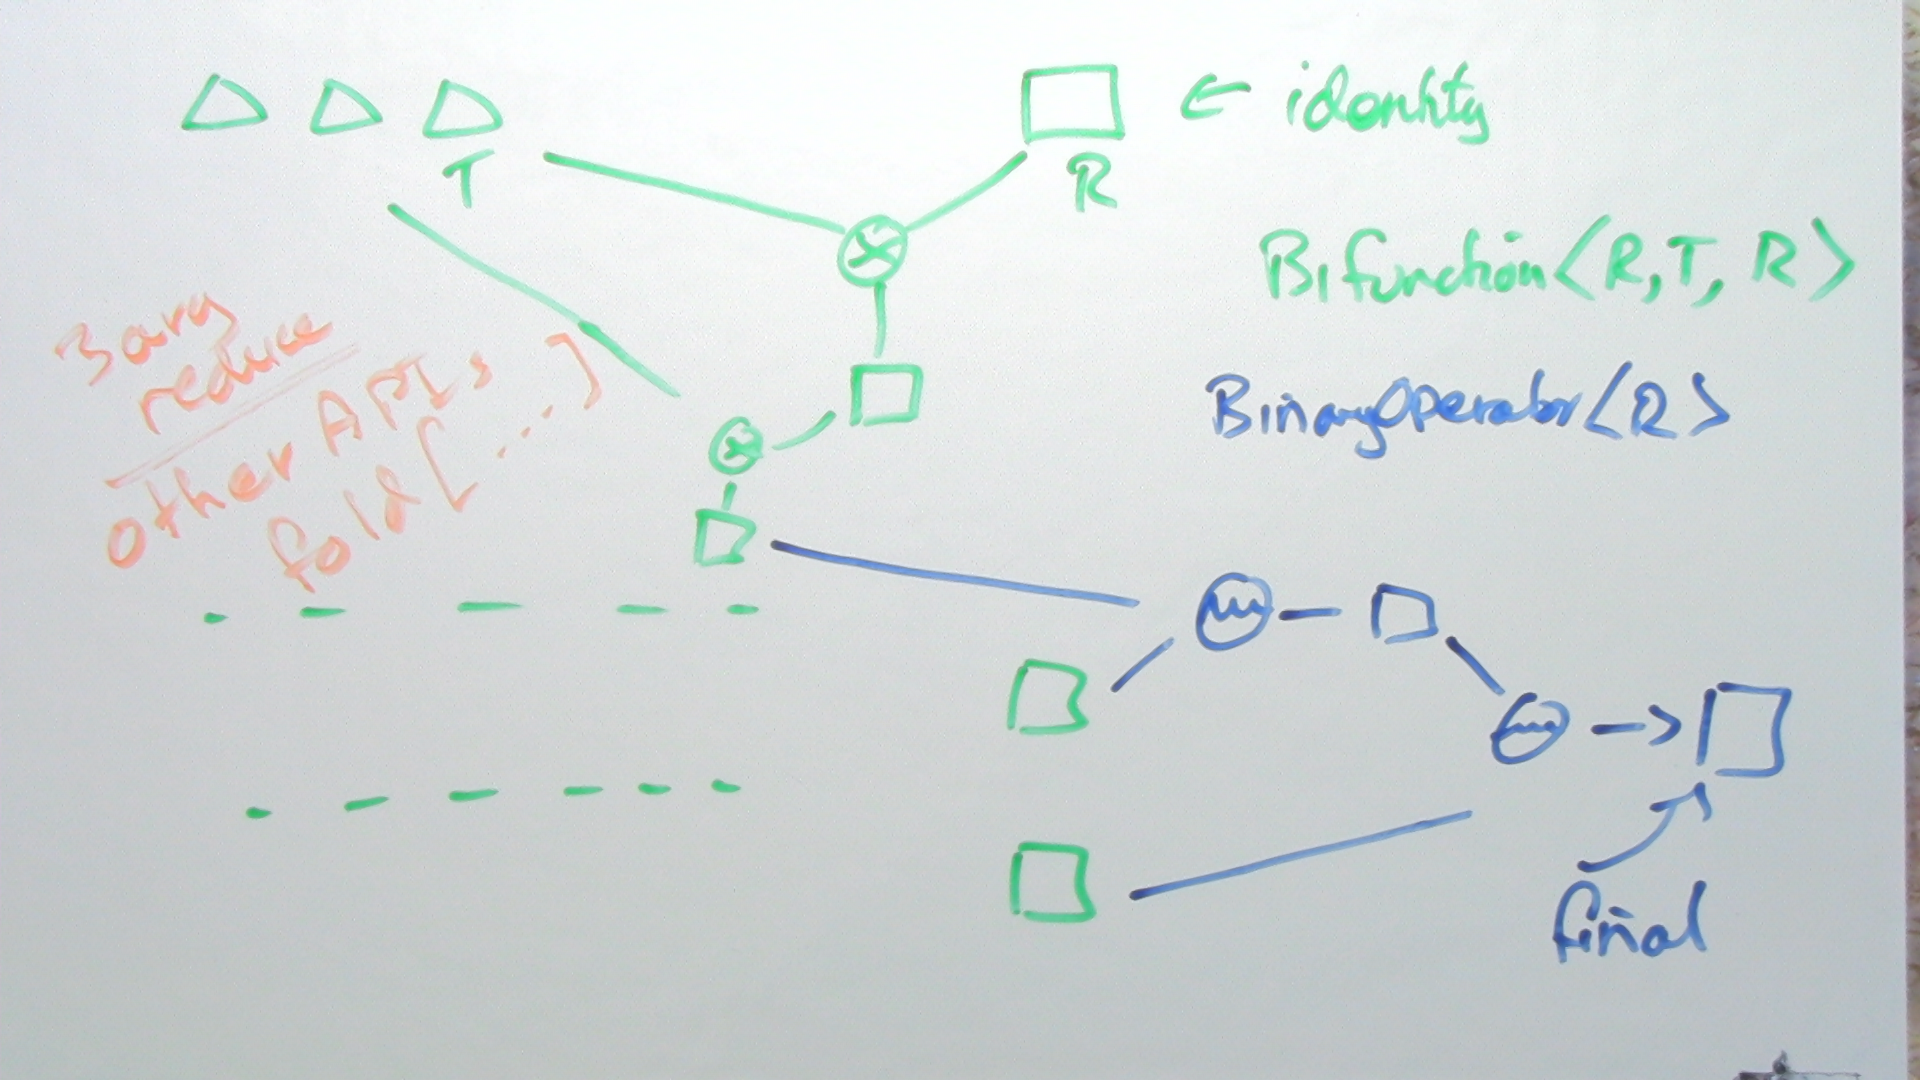 T
R
← identity
Bifunction<R,T, R>
BinaryOperator<R>
3 arg
reduce
other APIs
fold [....]
final